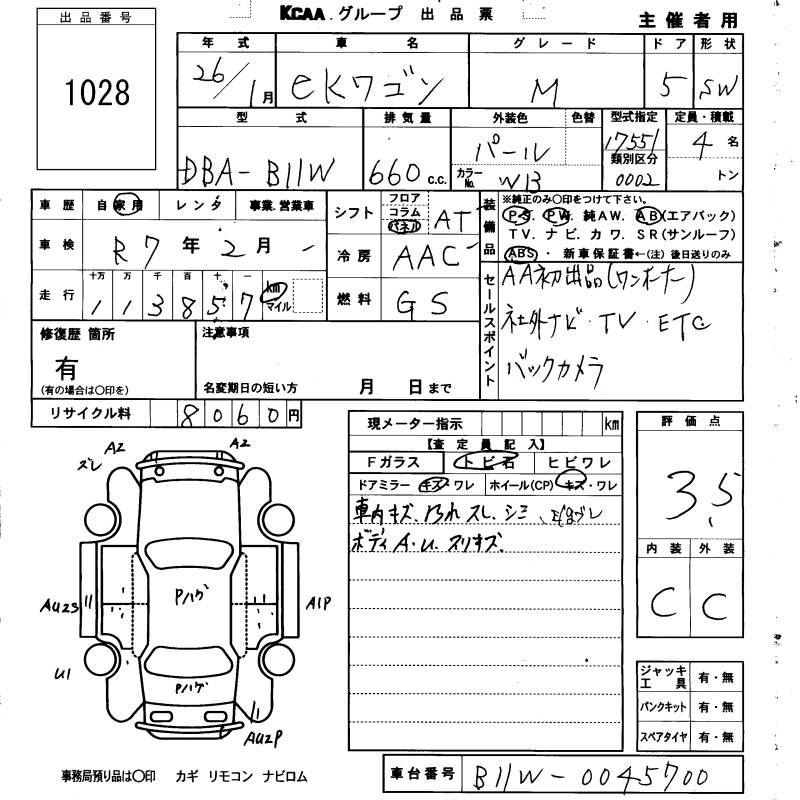 KCAA.グループ 出品票
主催者用
出品番号
1028
年式 車名 グレード ドア 形状
26/1月 eKワゴン M 5 SW
型式 排気量 外装色 色替 型式指定 定員・積載
DBA-B11W 660 c.c. パール 17551 4名
カラーNo. W13 類別区分 0002 トン
車歴 自家用 レンタ 事業.営業車
シフト フロア コラム パネル AT
装備品 ※純正のみ〇印をつけて下さい。
P.S. P.W. 純AW. AB(エアバック)
TV. ナビ. カワ. SR(サンルーフ)
ABS・新車保証書←(注)後日送りのみ
車検 R7年2月
冷房 AAC
走行 十万 万 千 百 十 一 km マイル
113857
燃料 GS
セールスポイント
AA初出品(ワンオーナー)
社外ナビ・TV・ETC
バックカメラ
修復歴 箇所
有
(有の場合は〇印を)
注意事項
名変期日の短い方 月 日まで
リサイクル料 8060円
現メーター指示 km
【査定員記入】
Fガラス トビ石 ヒビワレ
ドアミラー キズ・ワレ ホイール(CP) キズ・ワレ
車内キズ.汚れ スレ.シミ
ボディ A.U.スリキズ.
評価点
3.5
内装 外装
C C
ズレ A2 A2
Pハゲ
AU2S A1P
U1
Pハゲ
AU2P
ジャッキ工具 有・無
パンクキット 有・無
スペアタイヤ 有・無
事務局預り品は〇印 カギ リモコン ナビロム
車台番号 B11W-0045700